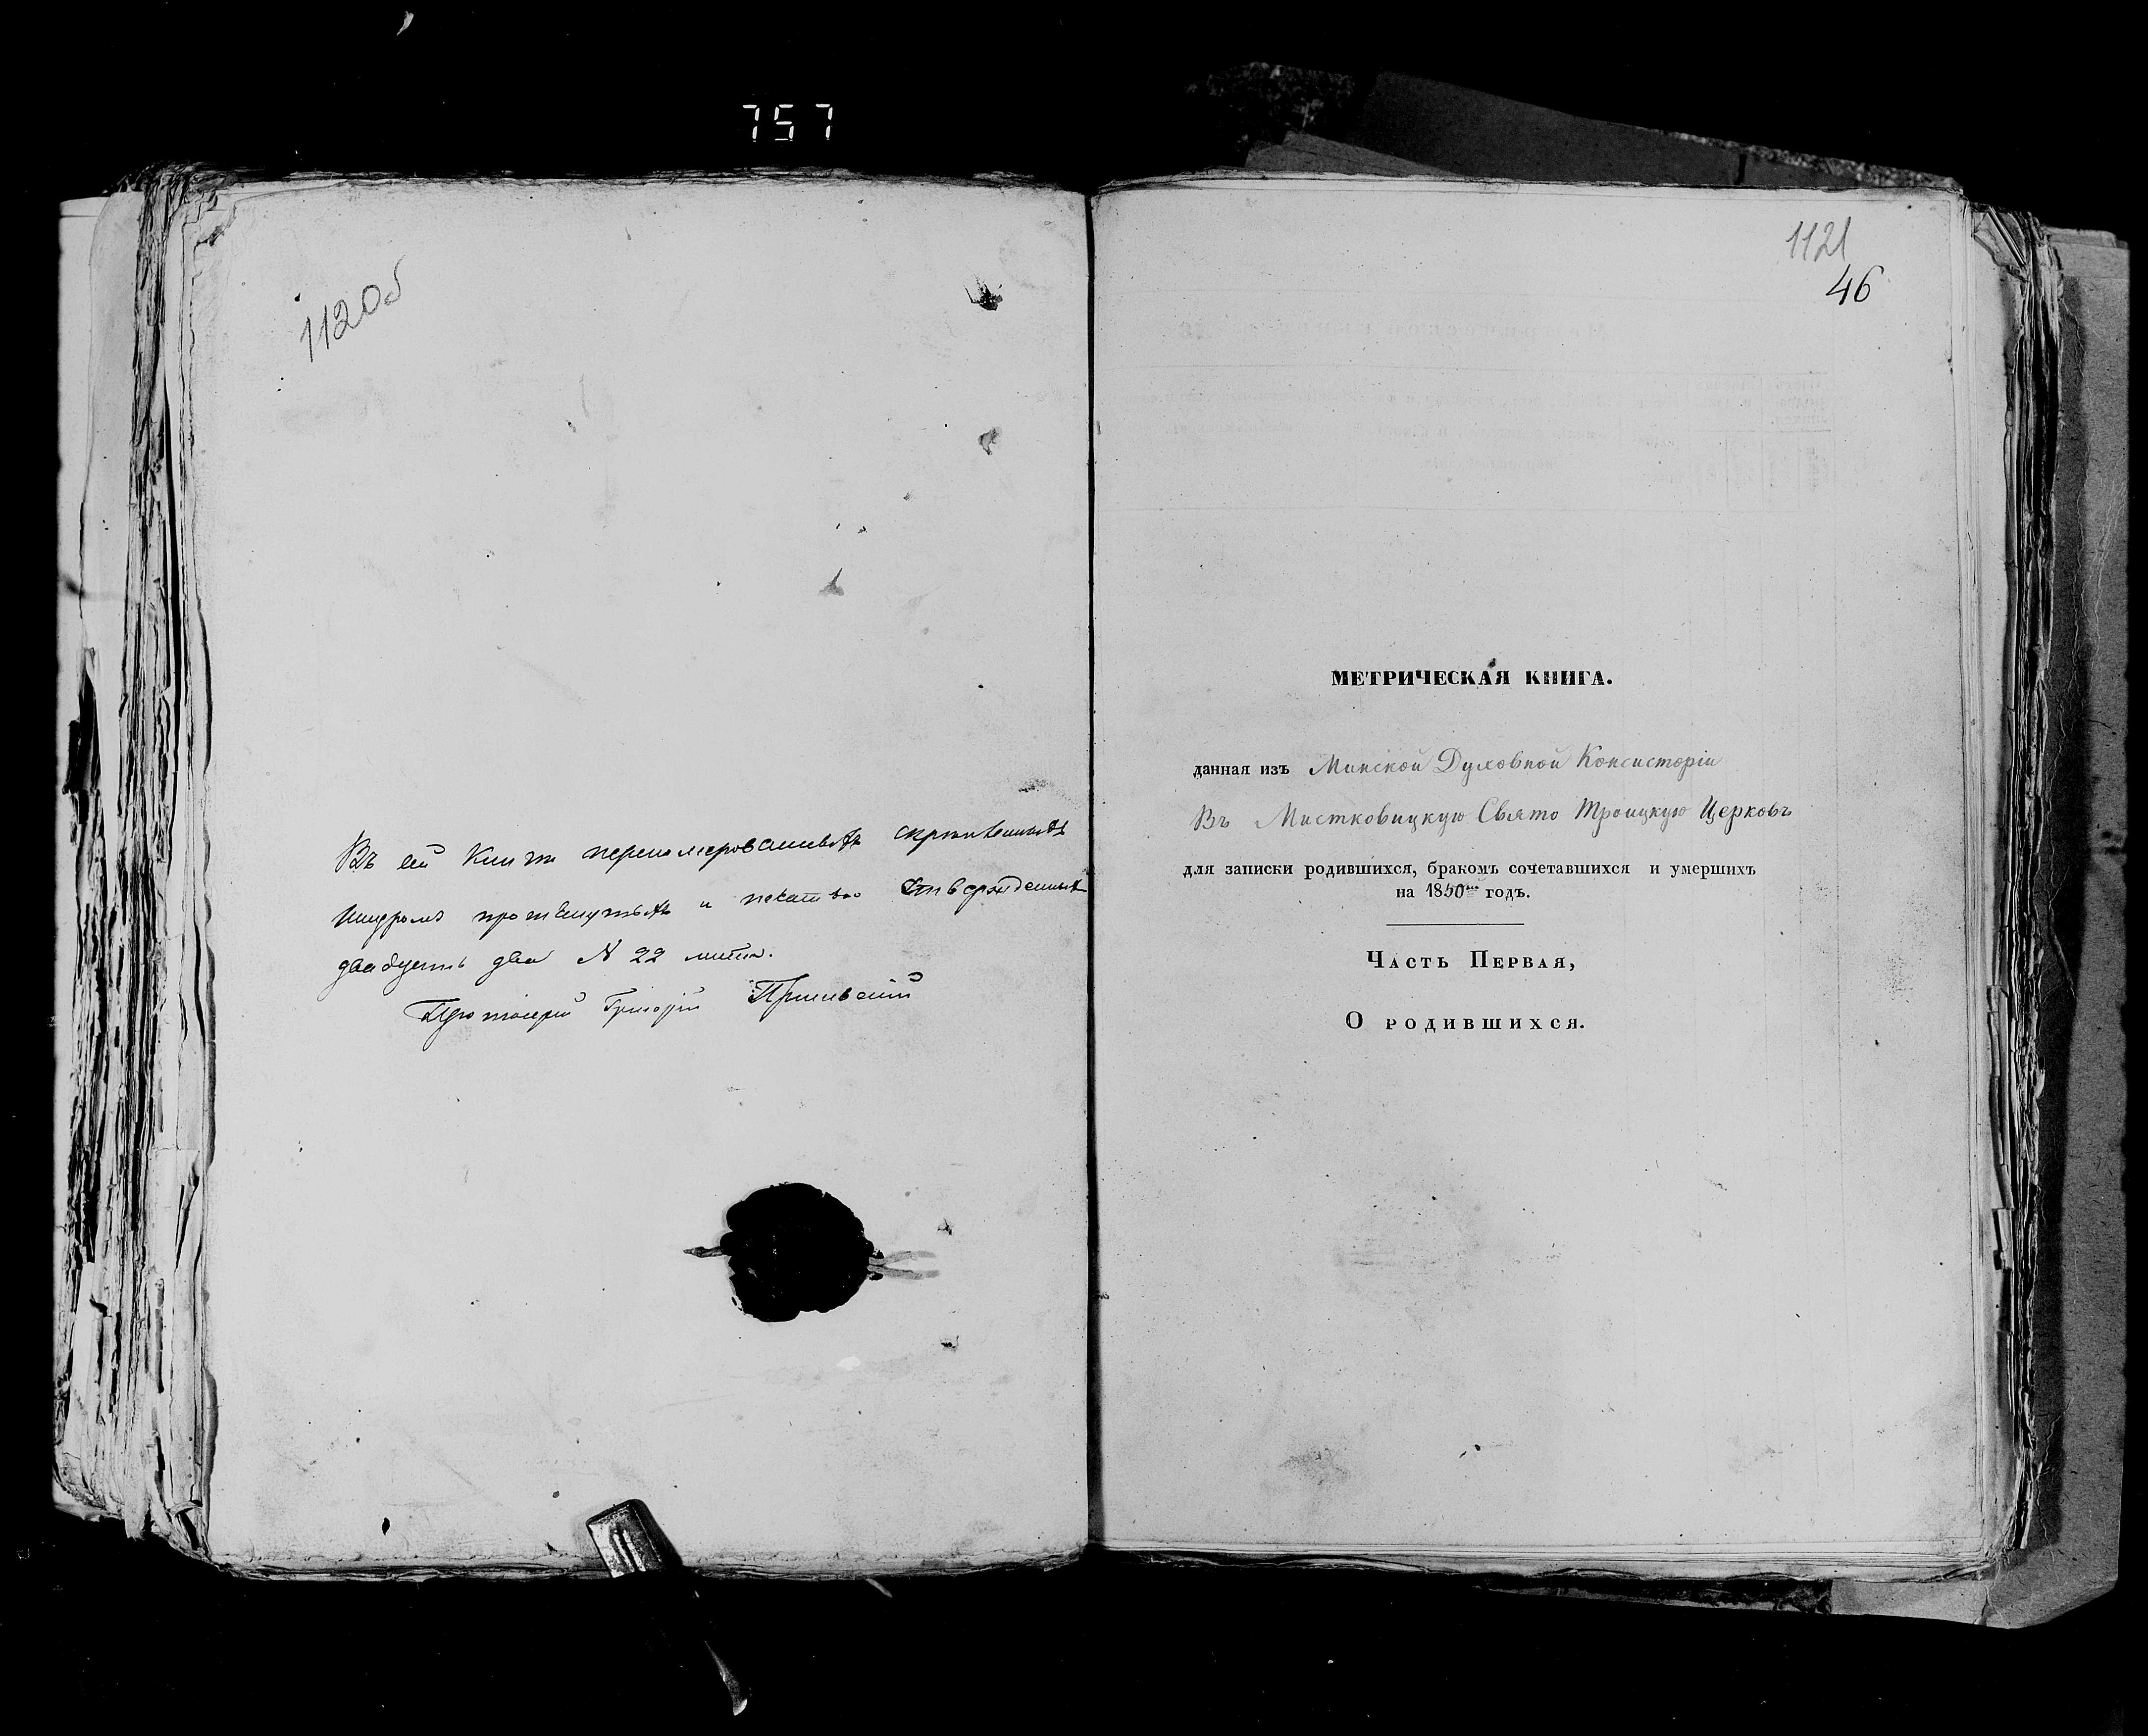 757
1120об
Въ сей Книгѣ перенумерованныхъ скрѣпленныхъ
шнуромъ протянутыхъ и печатью утвержденныхъ
двадцать два № 22 листа.
Протоіерей Григорій
1121
46
МЕТРИЧЕСКАЯ КНИГА.
данная изъ Минской Духовной Консисторіи
Въ Мистковицкую Свято Троицкую Церковь
для записки родившихся, бракомъ сочетавшихся и умершихъ
на 1850й годъ.
Часть Первая,
О родившихся.